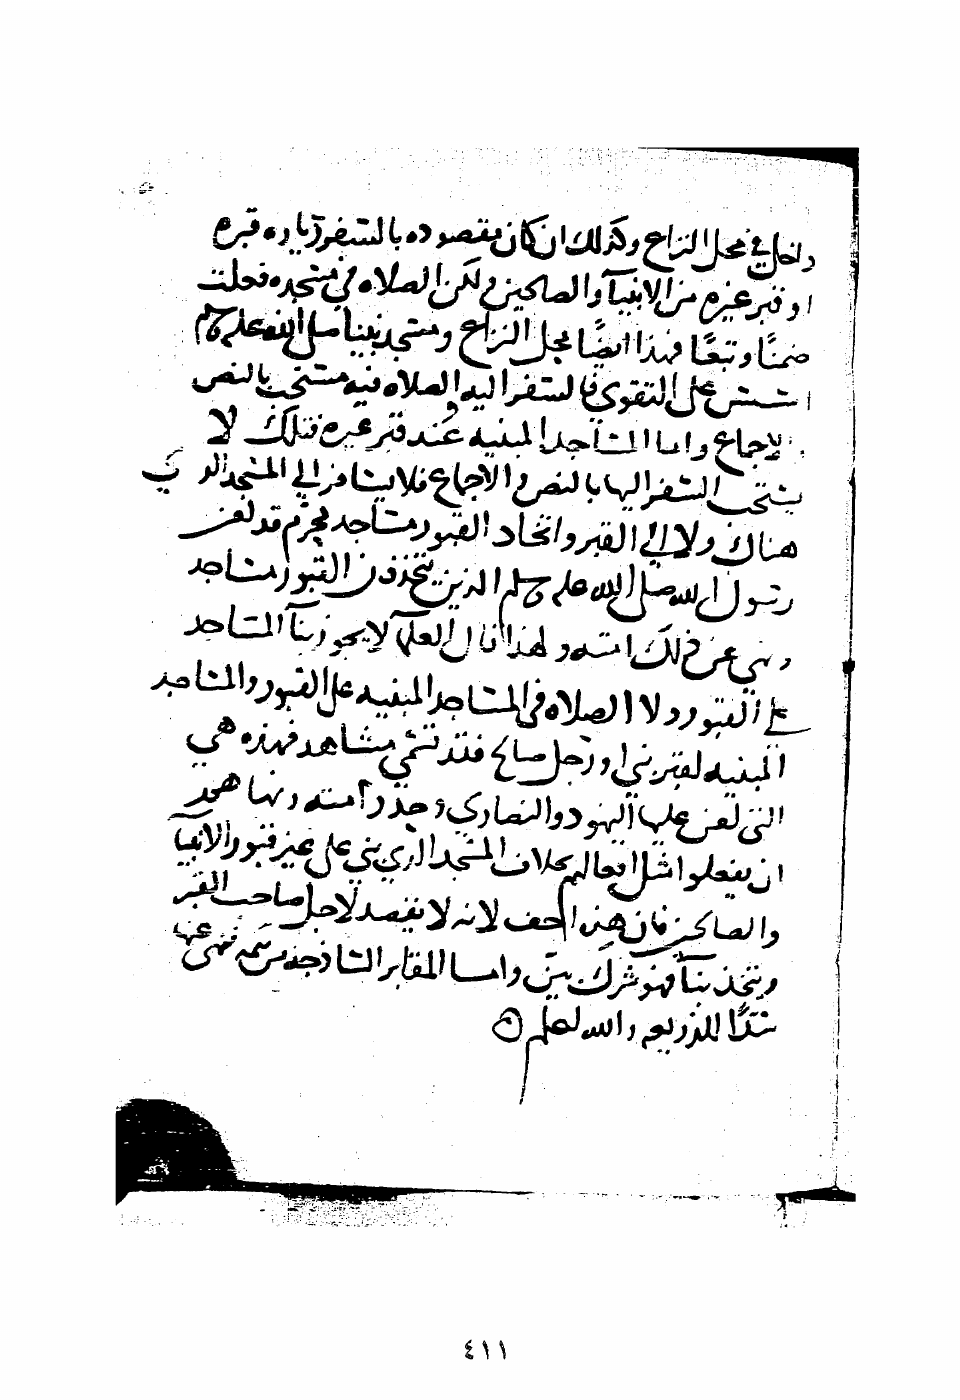 داخل في محل النزاع وكذلك ان كان مقصوده بالسفر زياره قبره
او قبر غيره من الانبيآ والصالحين ولكن الصلاه في مسجده فعلت
ضمنًا وتبعًا فهذا ايضًا محل النزاع ومسجد نبينا صلى الله عليه وسلم
اسس على التقوى فالسفر اليه والصلاه فيه مستحب بالنص
والاجماع واما المساجد المبنيه عند قبر غيره فتلك لا
يستحب السفر اليها بالنص والاجماع فلا يسافر الى المسجد الذي
هناك ولا الى القبر واتخاد القبور مساجد محرم قد لعن
رسول الله صلى الله عليه وسلم الذين يتخذون القبور مساجد
ونهى عن ذلك امته ولهذا قال العلمآ لا يجوز بنآ المساجد
على القبور ولا الصلاه في المساجد المبنيه على القبور والمساجد
المبنيه لقبر نبي او رجل صالح فقد تسمى مشاهد فهذه هي
التي لعن عليها اليهود والنصارى وحذر امته ونهاهم
ان يفعلوا مثل افعالهم بخلاف المسجد الذي بني على غير قبور الانبيآ
والصالحين فان هذا اخف لانه لا يقصد لاجل صاحب القبر
ويتخذ بنآ فهو شرك بين واما المقابر نهى عنها
سدًا للذريعه والله اعلم
٤١١